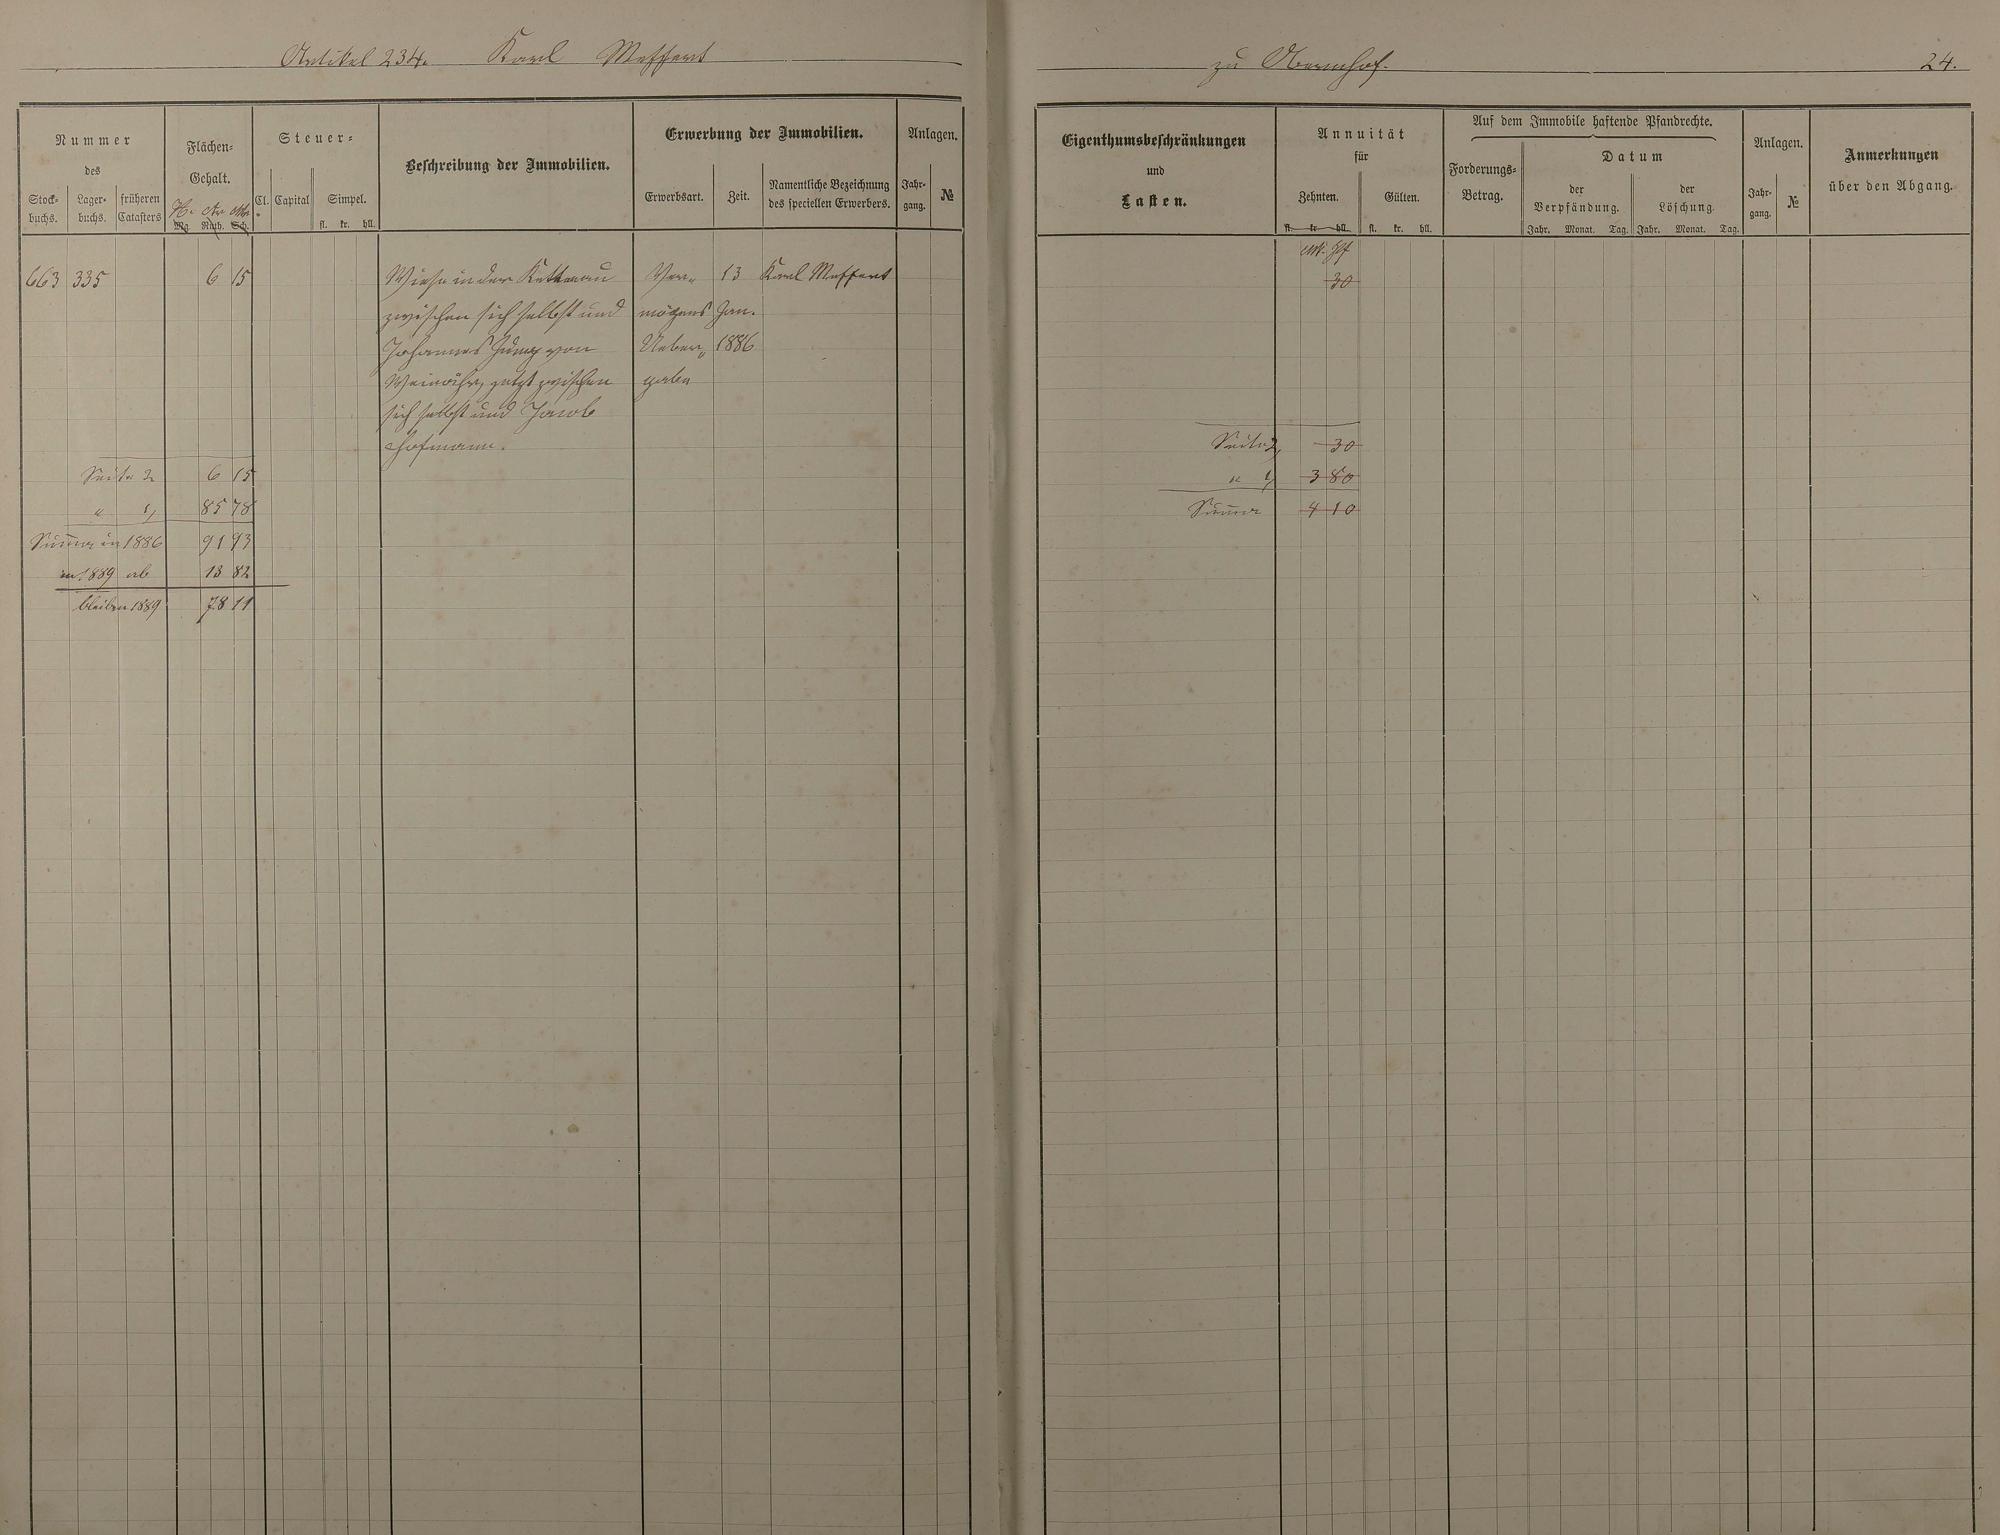 Artikel 234. Karl Meffert
zu Obernhof. 24.
Nummer
des
Stock-
buchs.
Lager-
buchs.
früheren
Catasters
Flächen-
Gehalt.
H. Ar
Mg. Ruth. Sch.
Steuer-
Cl. Capital Simpel.
fl. kr. hll.
Beschreibung der Immobilien.
Erwerbung der Immobilien.
Erwerbsart. Zeit.
Namentliche Bezeichnung
des speciellen Erwerbers.
Anlagen.
Jahr-
gang.
№
Eigenthumsbeschränkungen
und
Lasten.
Annuität
für
Zehnten. Gülten.
fl. kr. hll. fl. kr. hll.
Auf dem Immobile haftende Pfandrechte.
Forderungs-
Betrag.
Datum
der
Verpfändung.
der
Löschung.
Jahr. Monat. Tag. Jahr. Monat. Tag.
Anlagen.
Jahr-
gang.
№
Anmerkungen
über den Abgang.
663 335 6 15 Wiese in der Kettenau Ver- 13 Karl Meffert
zwischen sich selbst und mögens Jan.
Johannes Jung von Ueber- 1886
Weinähr, jetzt zwischen gabe
sich selbst und Jacob
Hofmann.
Seite 2 6 15
" 1, 85 78
Summe in 1886 91 93
in 1889 ab 13 82
bleiben 1889 78 11
Mk. Pf
30
Seite 2, 30
" 1, 3 80
Summe 4 10